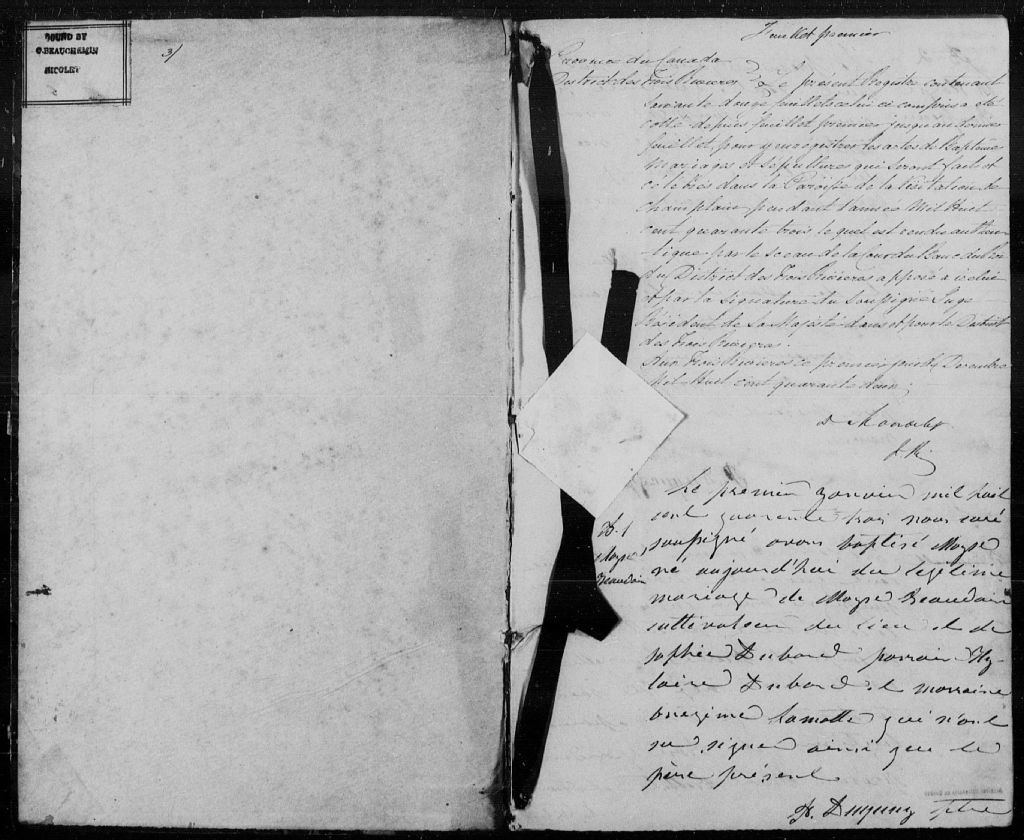 BOUND BY
O. BEAUCHEMIN
NICOLET
3/
Feuillet premier
Province du Canada
District des Trois Rivieres Le présent Registre contenant
Soixante douze feuillets celui ci compris a été
cotté depuis feuillet premier jusqu'au dernier
feuillet, pour y enregistrer les actes de Baptemes
Mariages et Sépultures qui seront fait et
célébrés dans la Paroisse de la Visitation de
Champlain pendant l'année Mil Huit
cent quarante trois lequel est rendu authen
tique par le sceau de la Cour du Banc du
du District des Trois Rivieres apposé a icelui
et par la signature du Soussigné Juge
Résident de Sa Majesté dans et pour le District
des Trois Rivieres.
Aux Trois Rivieres ce premier jour de Decembre
Mil Huit cent quarante deux.
B. 1
Moyse
Beaudoin
Le premier Janvier mil huit
cent quarente trois nous curé
soussigné avons baptisé Moyse
né aujourd'hui du légitime
mariage de Moyse Beaudoin
cultivateur du lieu et de
sophie Dubord parrain Hy
laire Dubord et marraine
onezime Lamotte qui n'ont
su signer ainsi que le
père présent
Ptre